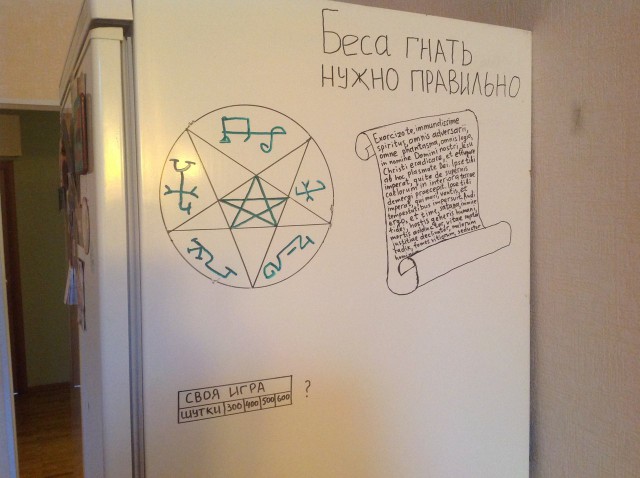 Беса гнать
нужно правильно
Exorcizo te, immundissime
spiritus, omnis adversarii,
omne phantasma, omnis legio,
in nomine Domini nostri Jesu
Christi eradicare, et effugare
ab hoc plasmate Dei. Ipse tibi
imperat, qui te de supernis
caelorum in inferiora terrae
demergi praecepit. Ipse tibi
imperat, qui mari, ventis, et
tempestatibus imperavit. Audi
ergo, et time, satana, inimice
fidei, hostis generis humani,
mortis adductor, vitae raptor,
justitiae declinator, malorum
radix, fomes vitiorum, seductor
hominum
СВОЯ ИГРА
ШУТКИ 300 400 500 600 ?